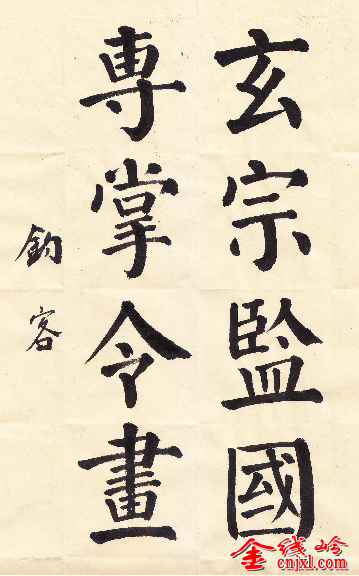 玄宗監國
專掌令畫
鈞客
金线岭
cnjxl.com